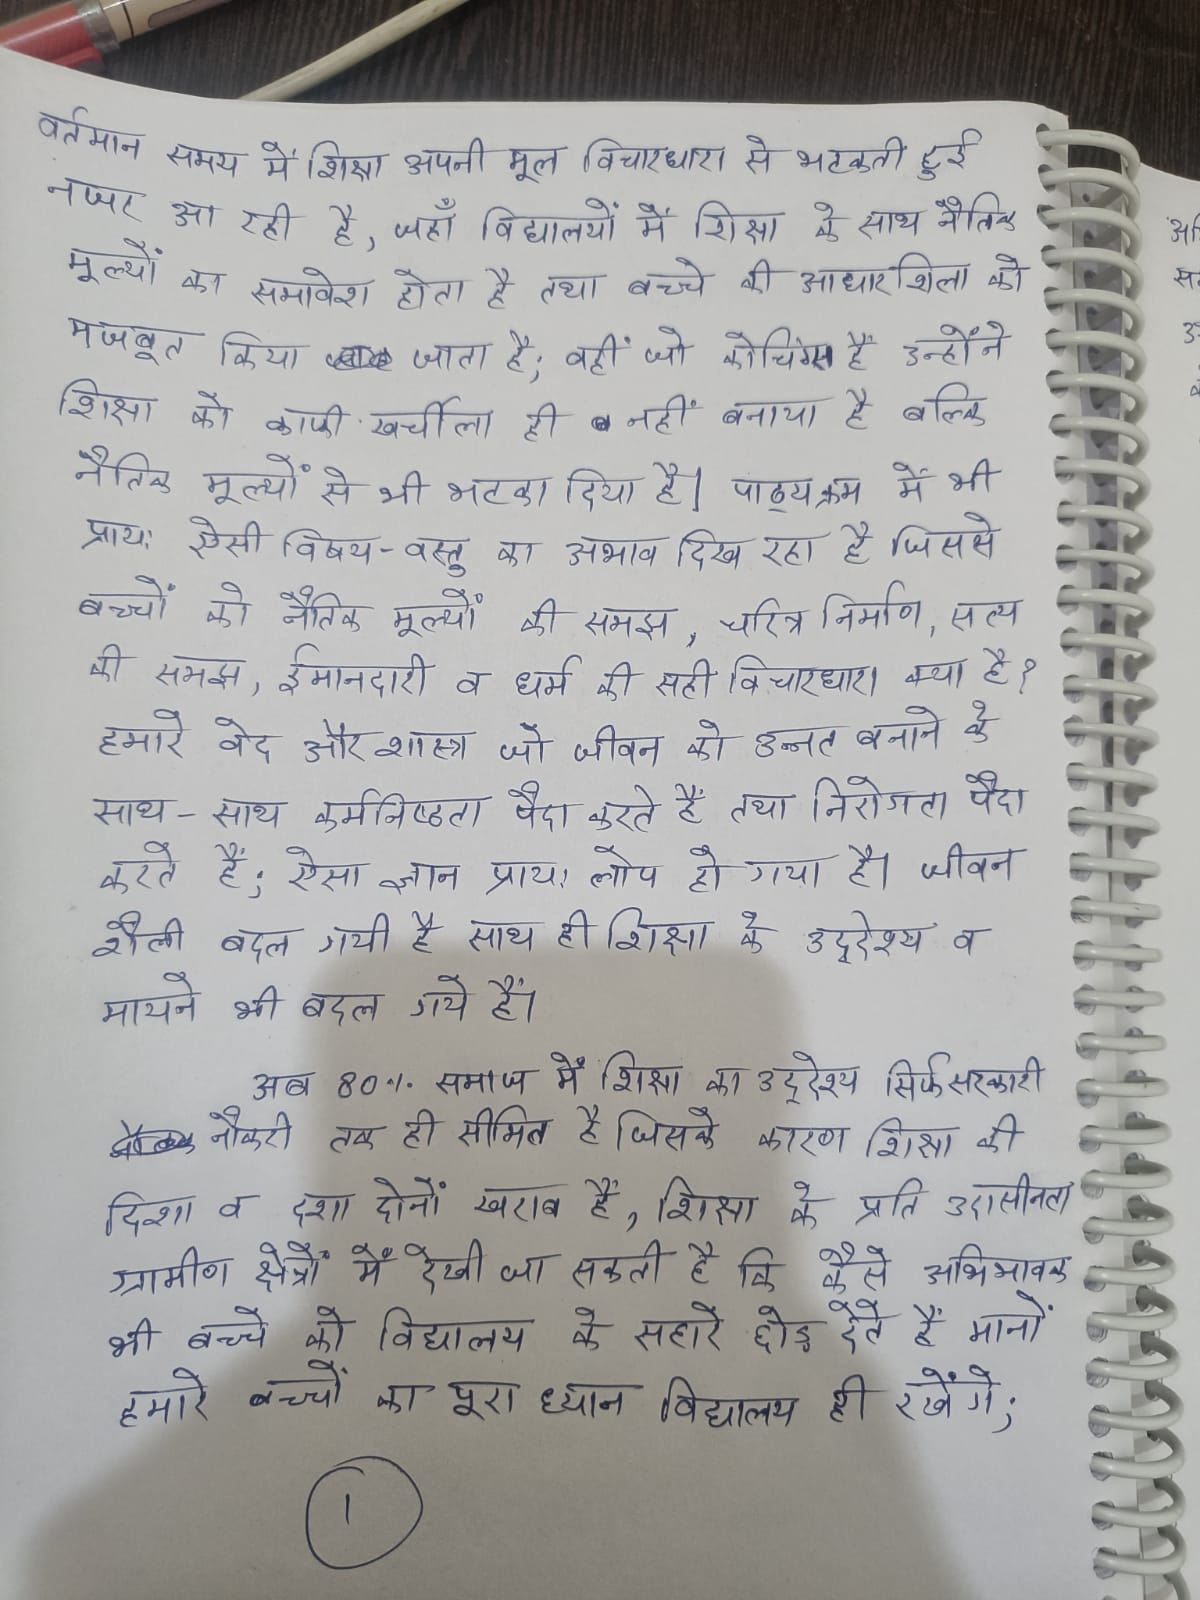 वर्तमान समय में शिक्षा अपनी मूल विचारधारा से भटकती हुई
नजर आ रही है, जहाँ विद्यालयों में शिक्षा के साथ नैतिक
मूल्यों का समावेश होता है तथा बच्चे की आधारशिला को
मजबूत किया जाता है; वहीं जो कोचिंग्स हैं उन्होंने
शिक्षा को काफी खर्चीला ही नहीं बनाया है बल्कि
नैतिक मूल्यों से भी भटका दिया है। पाठ्यक्रम में भी
प्रायः ऐसी विषय-वस्तु का अभाव दिख रहा है जिससे
बच्चों को नैतिक मूल्यों की समझ, चरित्र निर्माण, सत्य
की समझ, ईमानदारी व धर्म की सही विचारधारा क्या है?
हमारे वेद और शास्त्र जो जीवन को उन्नत बनाने के
साथ-साथ कर्मनिष्ठता पैदा करते हैं तथा निरोगता पैदा
करते हैं; ऐसा ज्ञान प्रायः लोप हो गया है। जीवन
शैली बदल गयी है साथ ही शिक्षा के उद्देश्य व
मायने भी बदल गये हैं।
अब 80% समाज में शिक्षा का उद्देश्य सिर्फ सरकारी
नौकरी तक ही सीमित है जिसके कारण शिक्षा की
दिशा व दशा दोनों खराब हैं, शिक्षा के प्रति उदासीनता
ग्रामीण क्षेत्रों में देखी जा सकती है कि कैसे अभिभावक
भी बच्चे को विद्यालय के सहारे छोड़ देते हैं मानों
हमारे बच्चों का पूरा ध्यान विद्यालय ही रखेंगे;
1